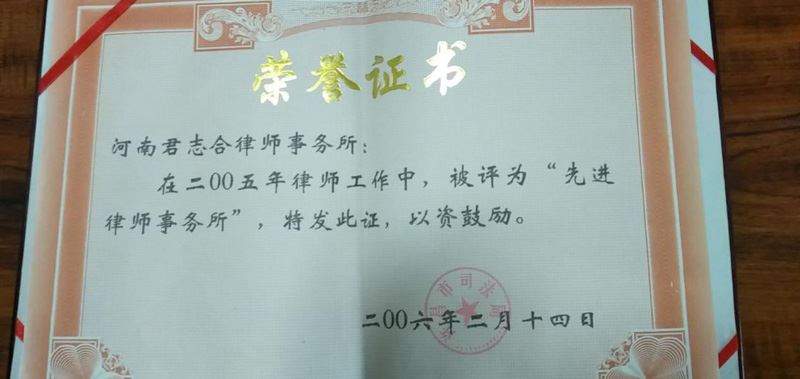 荣誉证书
河南君志合律师事务所：
在二00五年律师工作中，被评为“先进
律师事务所”，特发此证，以资鼓励。
市司法局
二00六年二月十四日